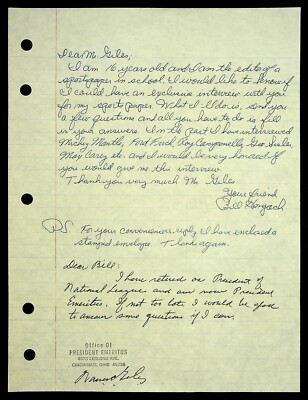 Dear Mr Giles,
I am 16 years old and I am the editor of a
sportspaper in school. I would like to know if
I could have an exclusive interview with you
for my sports paper. What I'll do is, send you
a few questions and all you have to do is fill
in your answers. In the past I have interviewed
Micky Mantle, Ford Frick, Roy Campanella, Geo. Sisler,
Max Carey etc. and I would be very honored if
you would give me the interview.
Thank you very much Mr Giles
Your friend
Bill
PS For your convenience reply, I have enclosed a
stamped envelope. Thanks again.
Dear Bill:
I have retired as President of
National League and am now President
Emeritus. If not too late I would be glad
to answer some questions if I can.
Office Of
PRESIDENT EMERITUS
CINCINNATI, OHIO
Warren Giles